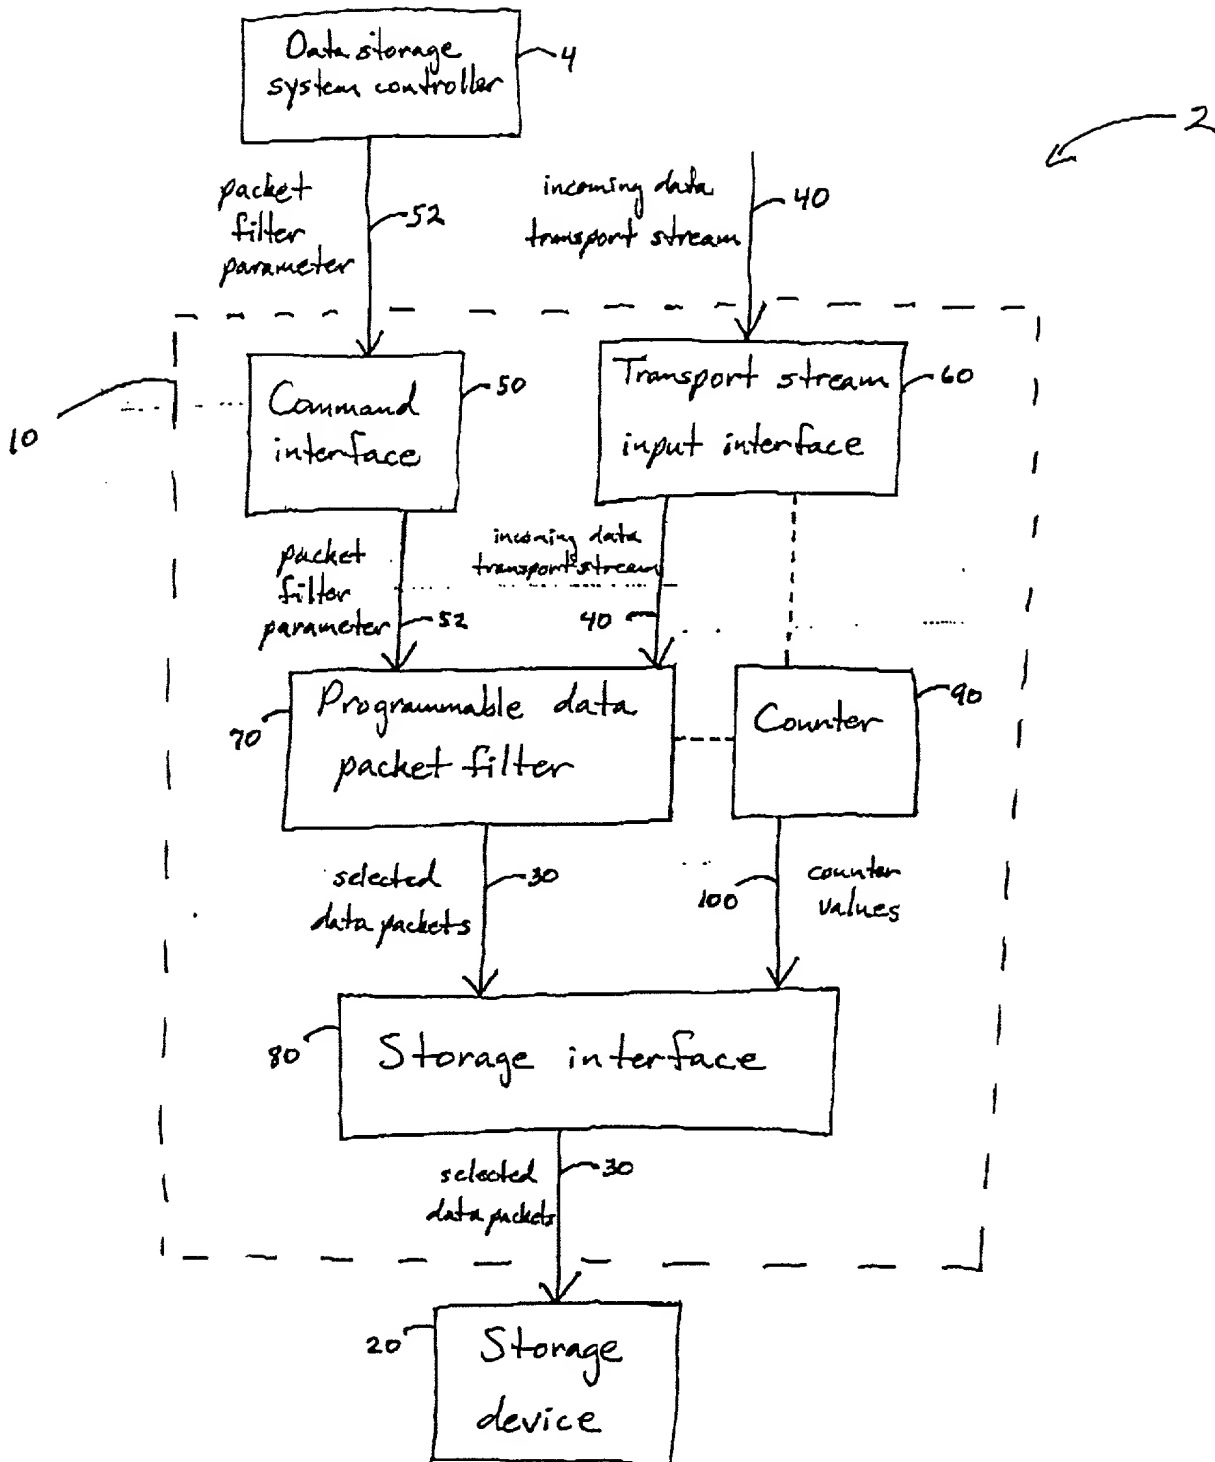 Data storage
system controller
4
2
packet
filter
parameter
52
incoming data
transport stream
40
10
Command
interface
50
Transport stream
input interface
60
packet
filter
parameter
52
incoming data
transport stream
40
70
Programmable data
packet filter
Counter
90
selected
data packets
30
100
counter
values
80
Storage interface
selected
data packets
30
20
Storage
device